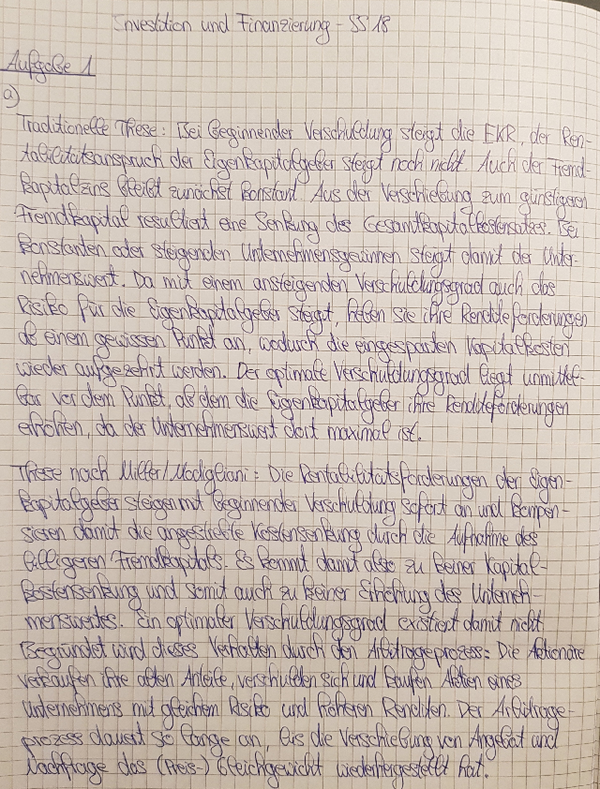 Investition und Finanzierung - SS 18
Aufgabe 1
a)
Traditionelle These: Bei beginnender Verschuldung steigt die EKR, der Ren-
tabilitätsanspruch der Eigenkapitalgeber steigt noch nicht. Auch der Fremd-
kapitalzins bleibt zunächst konstant. Aus der Verschiebung zum günstigeren
Fremdkapital resultiert eine Senkung des Gesamtkapitalkostensatzes. Bei
konstanten oder steigenden Unternehmensgewinnen steigt damit der Unter-
nehmenswert. Da mit einem ansteigenden Verschuldungsgrad auch das
Risiko für die Eigenkapitalgeber steigt, heben sie ihre Renditeforderungen
ab einem gewissen Punkt an, wodurch die eingesparten Kapitalkosten
wieder aufgezehrt werden. Der optimale Verschuldungsgrad liegt unmittel-
bar vor dem Punkt, ab dem die Eigenkapitalgeber ihre Renditeforderungen
erhöhen, da der Unternehmenswert dort maximal ist.
These nach Miller/Modigliani: Die Rentabilitätsforderungen der Eigen-
kapitalgeber steigen mit beginnender Verschuldung sofort an und kompen-
sieren damit die angestrebte Kostensenkung durch die Aufnahme des
billigeren Fremdkapitals. Es kommt damit also zu keiner Kapital-
kostensenkung und somit auch zu keiner Erhöhung des Unterneh-
menswertes. Ein optimaler Verschuldungsgrad existiert damit nicht.
Begründet wird dieses Verhalten durch den Arbitrageprozess: Die Aktionäre
verkaufen ihre alten Anteile, verschulden sich und kaufen Aktien eines
Unternehmens mit gleichem Risiko und höheren Renditen. Der Arbitrage-
prozess dauert so lange an, bis die Verschiebung von Angebot und
Nachfrage das (Preis-) Gleichgewicht wiederhergestellt hat.